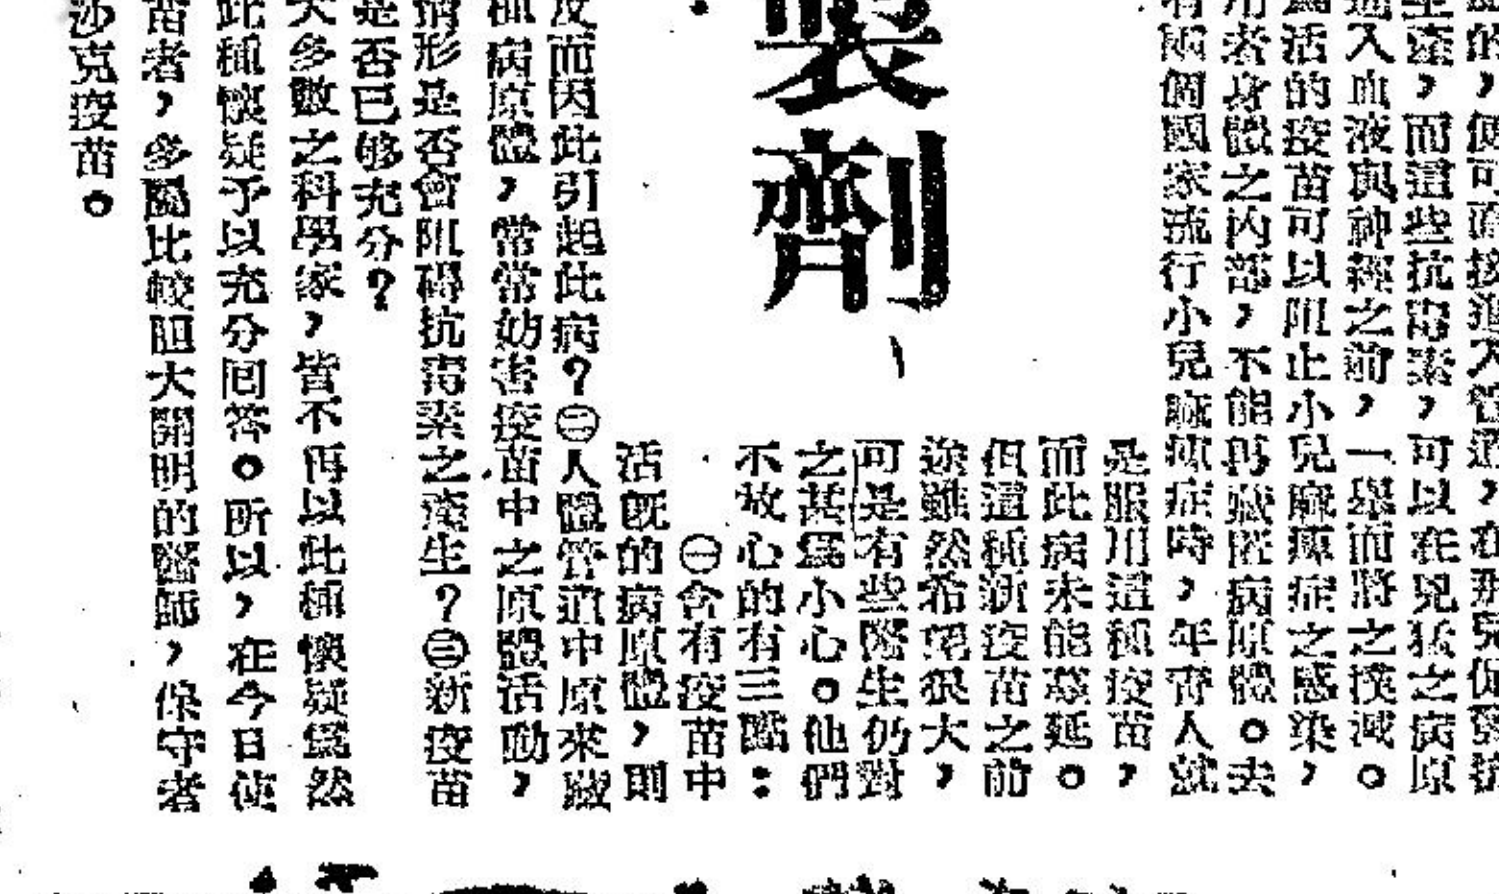 的，便可直接進入管道，在那兒
生產，而這些抗毒素，可以在兒猛之病原
入血液與神經之前，一舉而將之撲滅。
活的疫苗可以阻止小兒麻痺症之感染，
用者身體之內部，不能再藏匿病原體。去
有兩個國家流行小兒麻痺症時，年青人就
是服用這種疫苗，
而此病未能蔓延。
但這種新疫苗之前
途雖然希望很大，
可是有些醫生仍對
之甚爲小心。他們
不放心的有三點：
製劑
㊀含有疫苗中
活旣的病原體，則
反而因此引起此病？㊁人體管道中原來藏
種病原體，常常妨害疫苗中之原體活動，
情形是否會阻碍抗毒素之產生？㊂新疫苗
是否已够充分？
大多數之科學家，皆不再以此種懷疑爲然
此種懷疑予以充分回答。所以，在今日使
苗者，多屬比較胆大開明的醫師，保守者
沙克疫苗。